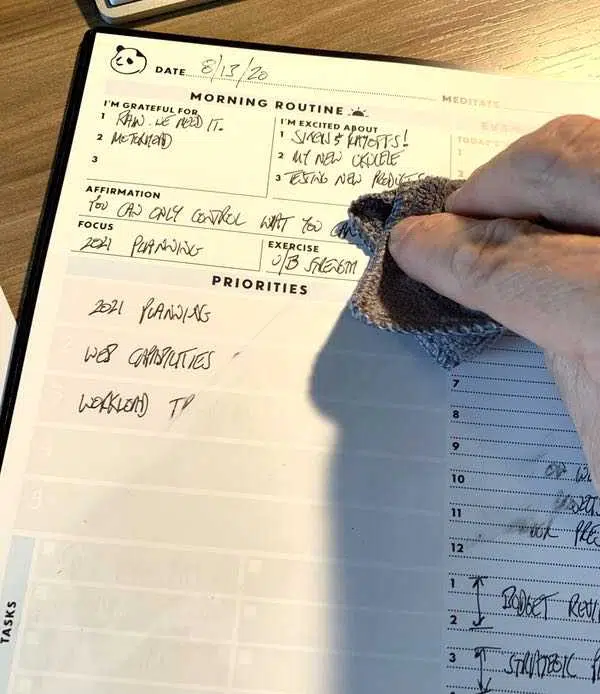 DATE 8/13/20
MEDITATE
MORNING ROUTINE
I'M GRATEFUL FOR
1 RAW. WE NEED IT.
2 MOTORHEAD
3
I'M EXCITED ABOUT
1 SIMON & PLAYOFFS!
2 MY NEW UKULELE
3 TESTING NEW PRODUCTS
TODAY'S
1
AFFIRMATION
YOU CAN ONLY CONTROL WHAT YOU CAN
FOCUS
2021 PLANNING
EXERCISE
U/B STRENGTH
PRIORITIES
2021 PLANNING
WEB CAPABILITIES
WORKLOAD
TASKS
7
8
9
10
11
12
1
BUDGET
2
3 STRATEGIC